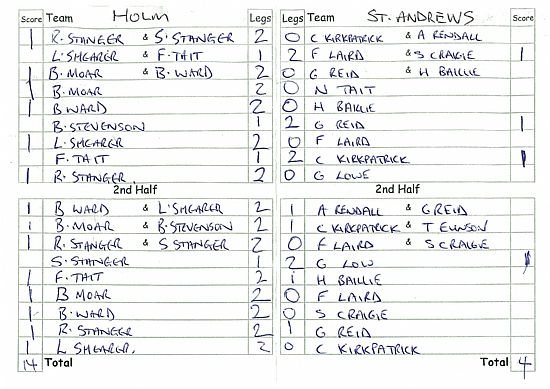 Score Team HOLM Legs 0 Team ST. ANDREWS Score
1 R. STANGER & S. STANGER 2 0 C KIRKPATRICK & A RENDALL
L. SHEARER & F. TAIT 1 2 F LAIRD & S CRAIGIE 1
1 B. MOAR & B. WARD 2 0 G REID & H BAILLIE
1 B. MOAR 2 0 N TAIT
1 B WARD 2 0 H BAILLIE
B. STEVENSON 1 2 G REID 1
1 L. SHEARER 2 0 F LAIRD
F. TAIT 1 2 C KIRKPATRICK 1
1 R. STANGER 2 0 G LOWE
2nd Half 2nd Half
1 B WARD & L. SHEARER 2 1 A RENDALL & G REID
1 B. MOAR & B. STEVENSON 2 1 C KIRKPATRICK & T EUNSON
1 R. STANGER & S STANGER 2 0 F LAIRD & S CRAIGIE
S. STANGER 1 2 G LOW 1
1 F. TAIT 2 1 H BAILLIE
1 B MOAR 2 0 F LAIRD
1 B. WARD 2 0 S CRAIGIE
1 R. STANGER 2 1 G REID
1 L SHEARER. 2 0 C KIRKPATRICK
14 Total Total 4